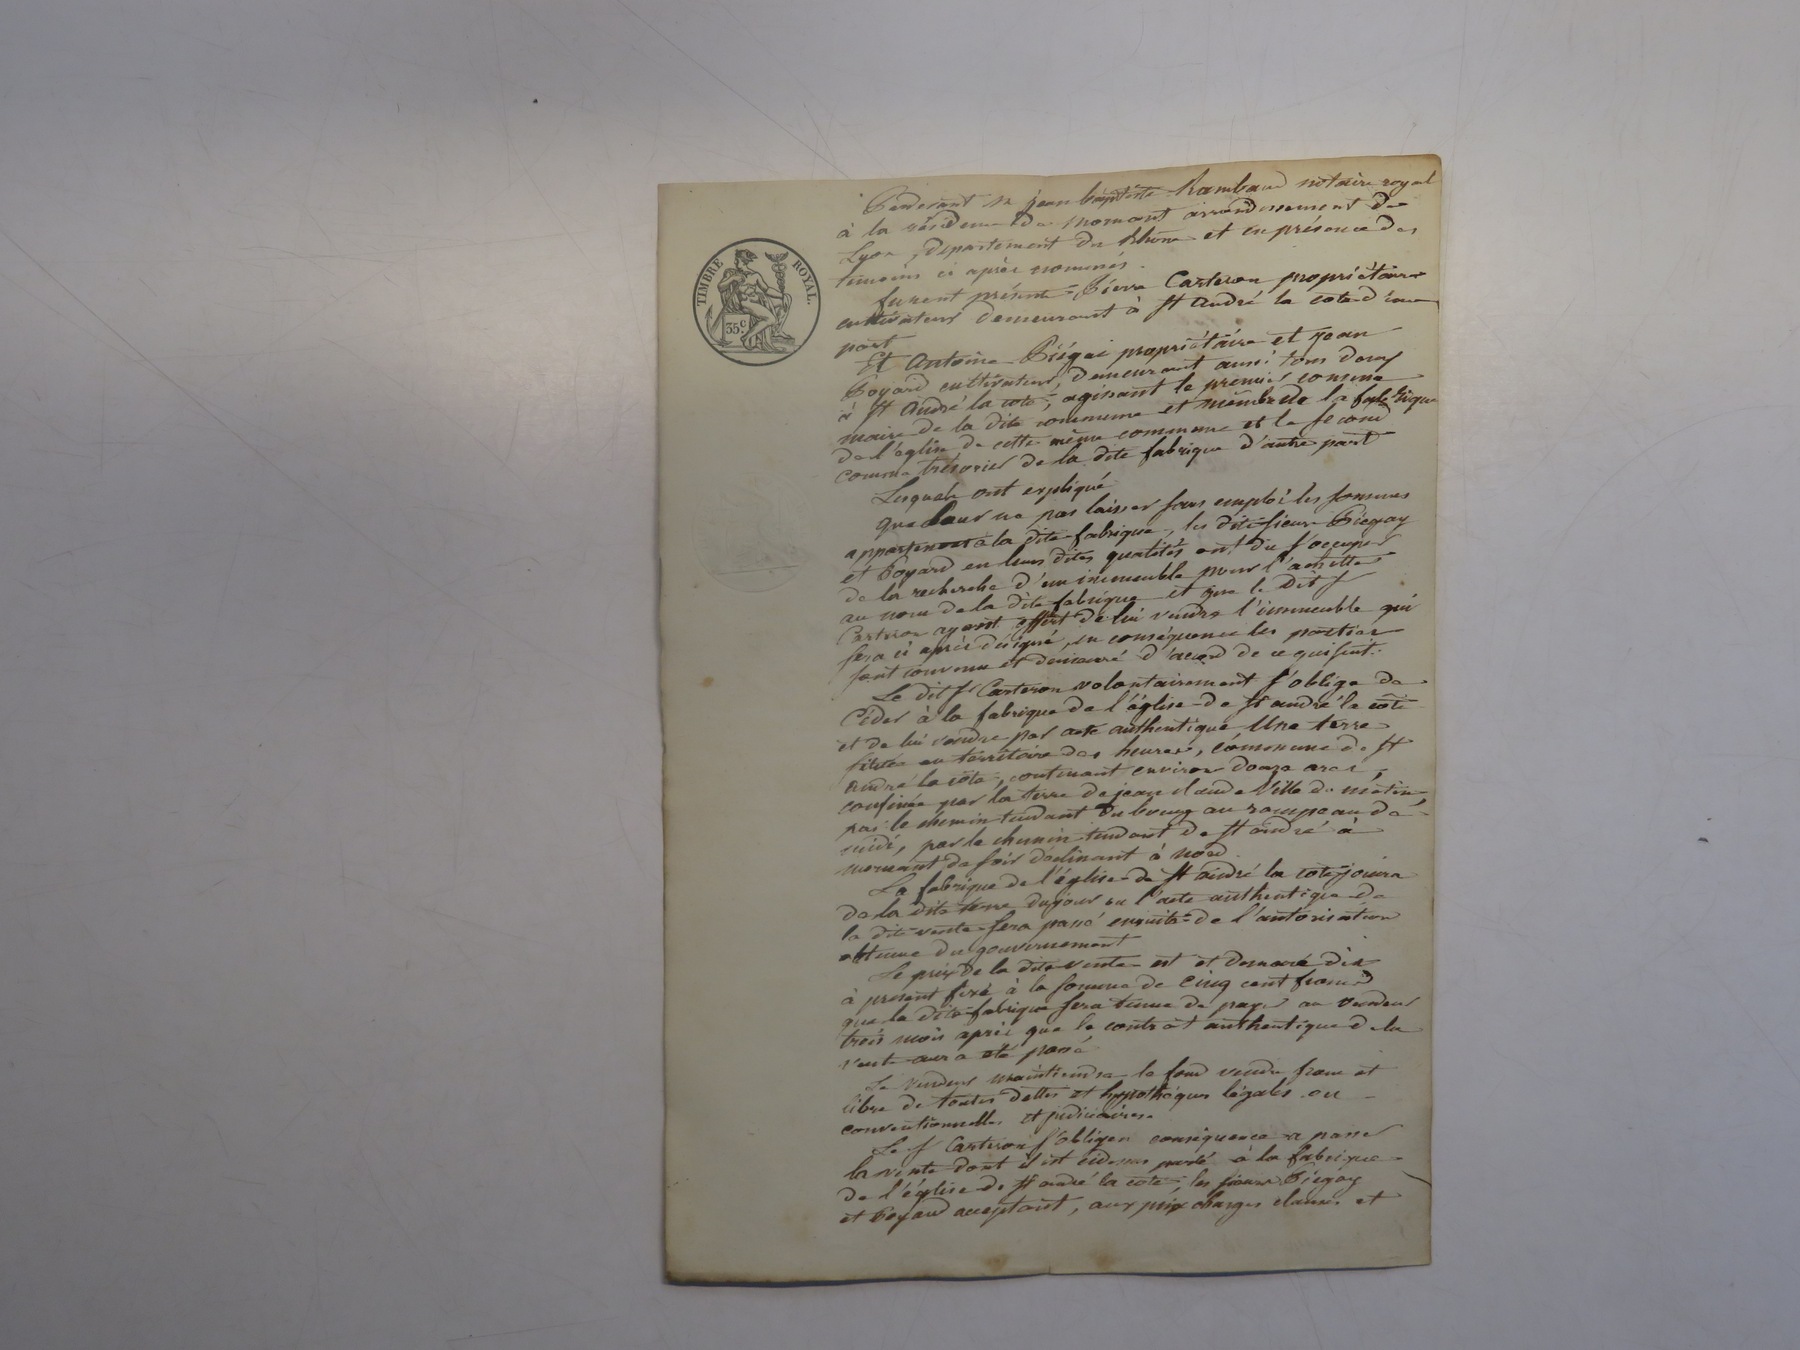 TIMBRE ROYAL.
35 c
Pardevant Me jean baptiste Rambaud notaire royal
à la résidence de mornant arrondissement de
Lyon, département du Rhône et en présence des
témoins ci après nommés.
furent présents Pierre Carteron propriétaire
cultivateur demeurant à St André la cote d'une
part
Et Antoine Piégai propriétaire et jean
Poyard cultivateur, demeurant aussi tous deux
à St André la cote, agissant le premier comme
maire de la dite commune et membre de la fabrique
de l'église de cette même commune et le second
comme trésorier de la dite fabrique d'autre part
Lesquels ont expliqué
que pour ne pas laisser sans emploi les sommes
appartenant à la dite fabrique, les dits sieurs Piégay
et Poyard en leurs dites qualités ont du s'occuper
de la recherche d'un immeuble pour l'achetter
au nom de la dite fabrique et que le dit Sr
Carteron ayant offert de lui vendre l'immeuble qui
sera ci après désigné, en conséquence les parties
sont convenu et demeuré d'accord de ce qui suit:
Le dit Sr Carteron volontairement s'oblige de
Céder à la fabrique de l'église de St andré la cote
et de lui vendre par acte authentique Une terre
située au territoire des heures, commune de St
André la cote, contenant environ douze ares,
confinée par la terre de jean claude Ville de matin,
par le chemin tendant du bourg au rampeau de
midi, par le chemin tendant de St andré à
mornant de soir déclinant à nord
La fabrique de l'église de St andré la cote jouira
de la dite terre du jour ou l'acte authentique de
la dite vente sera passé ensuite de l'autorisation
obtenue du gouvernement
Le prix de la dite vente est et demeure dès
à présent fixé à la somme de cinq cent francs
que la dite fabrique sera tenue de payer au vendeur
trois mois après que le contrat authentique de la
vente aura été passé
Le vendeur maintiendra le fond vendu franc et
libre de toutes dettes et hypothèques légales ou
conventionnelles et judiciaires.
Le Sr Carteron s'oblige en conséquence a passer
la vente dont il est cidessus parlé à la fabrique
de l'église de St andré la cote, les sieurs Piégay
et Poyard acceptant, aux prix charges clauses et